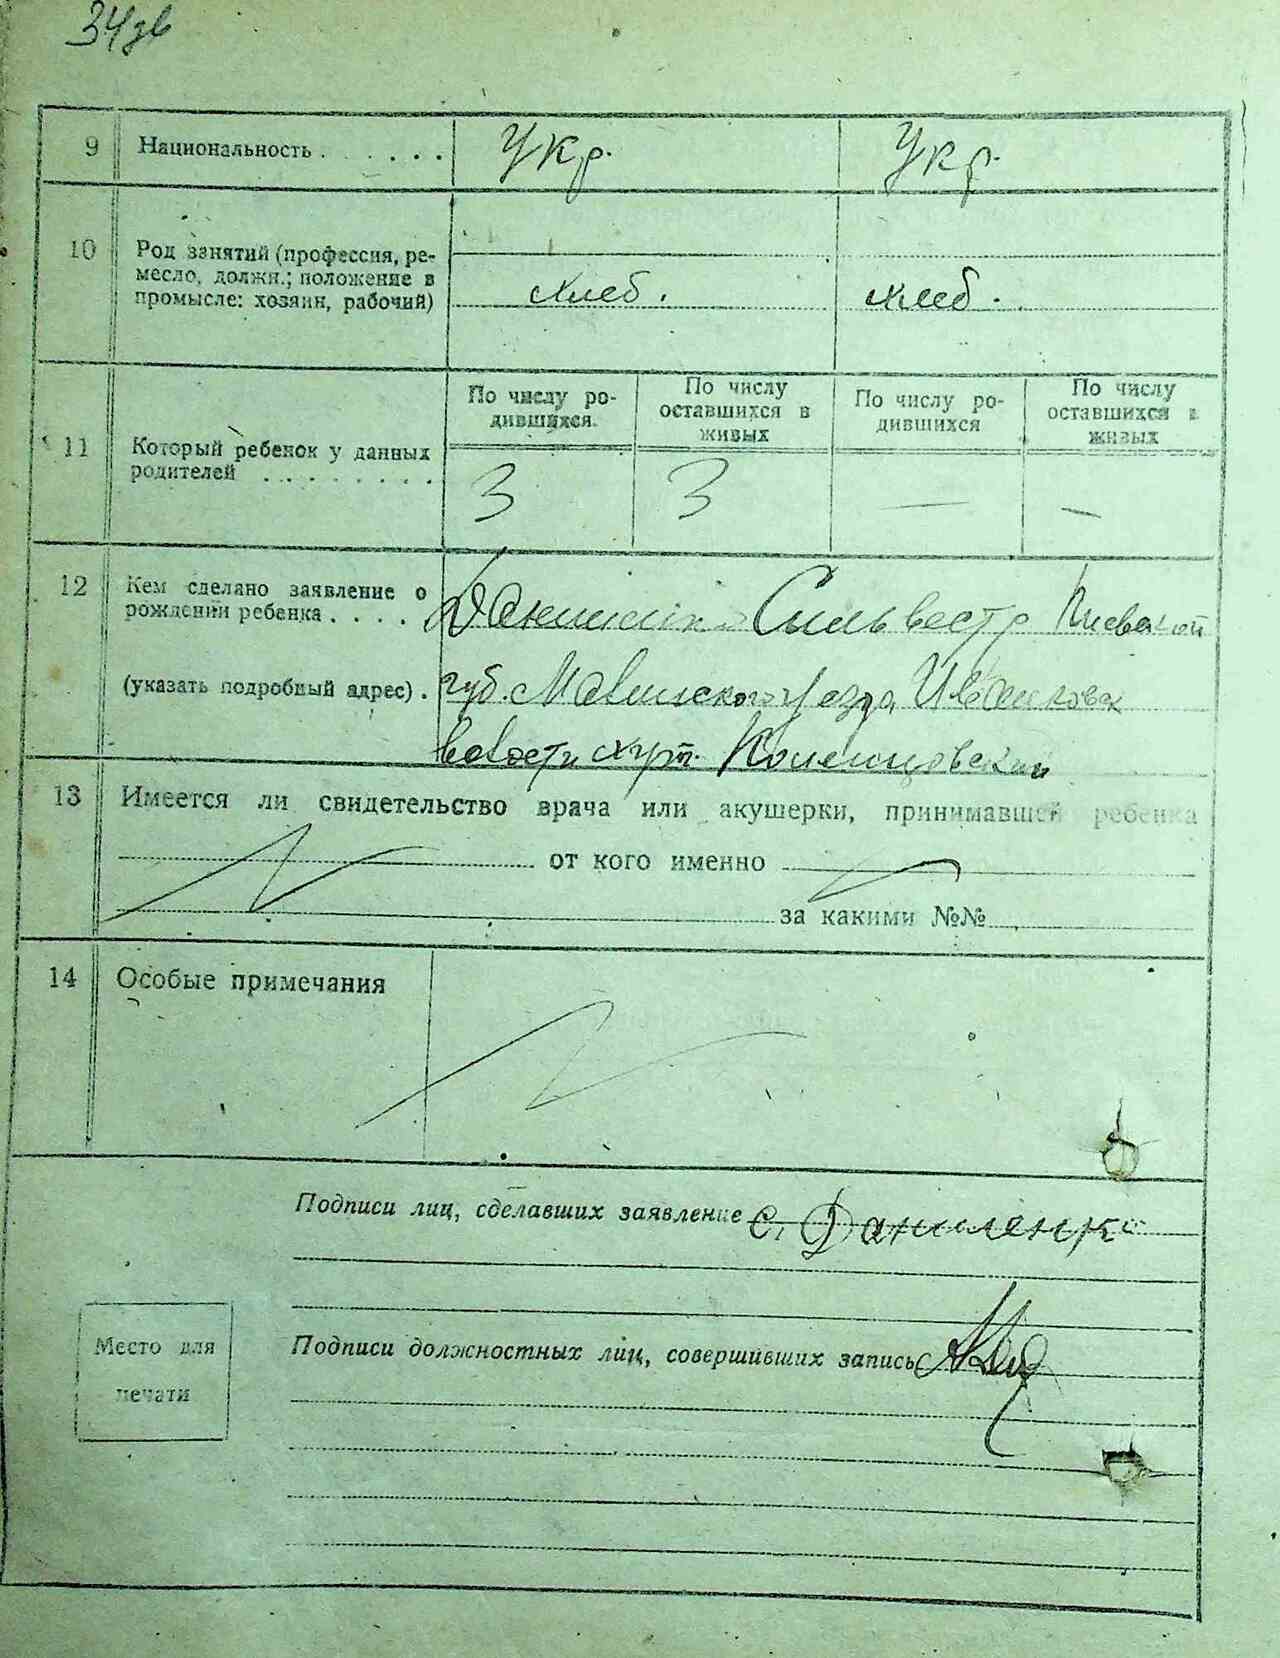 34зв
9 Национальность . . . . . . Укр. Укр.
10 Род занятий (профессия, ре-
месло, должн.; положение в
промысле: хозяин, рабочий) хлеб. хлеб.
11 Который ребенок у данных
родителей . . . . . . . .
По числу ро-
дившихся.
По числу
оставшихся в
живых
По числу ро-
дившихся
По числу
оставшихся в
живых
3 3 — —
12 Кем сделано заявление о
рождении ребенка . . . .
(указать подробный адрес) .
Сильвестр Киевской
губ. уезда,
волости хут.
13 Имеется ли свидетельство врача или акушерки, принимавшей ребенка
от кого именно
за какими №№
14 Особые примечания
Подписи лиц, сделавших заявление С. Даниленко
Место для
печати
Подписи должностных лиц, совершивших запись